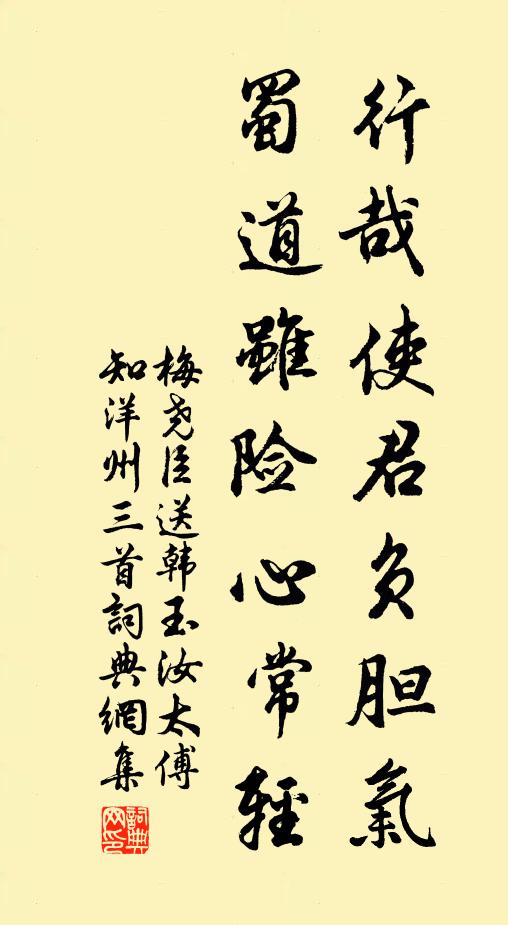 行哉使君负胆氣
蜀道雖险心常輕
梅尧臣送韩玉汝太傅
知洋州三首詞典網集
詞典
网印